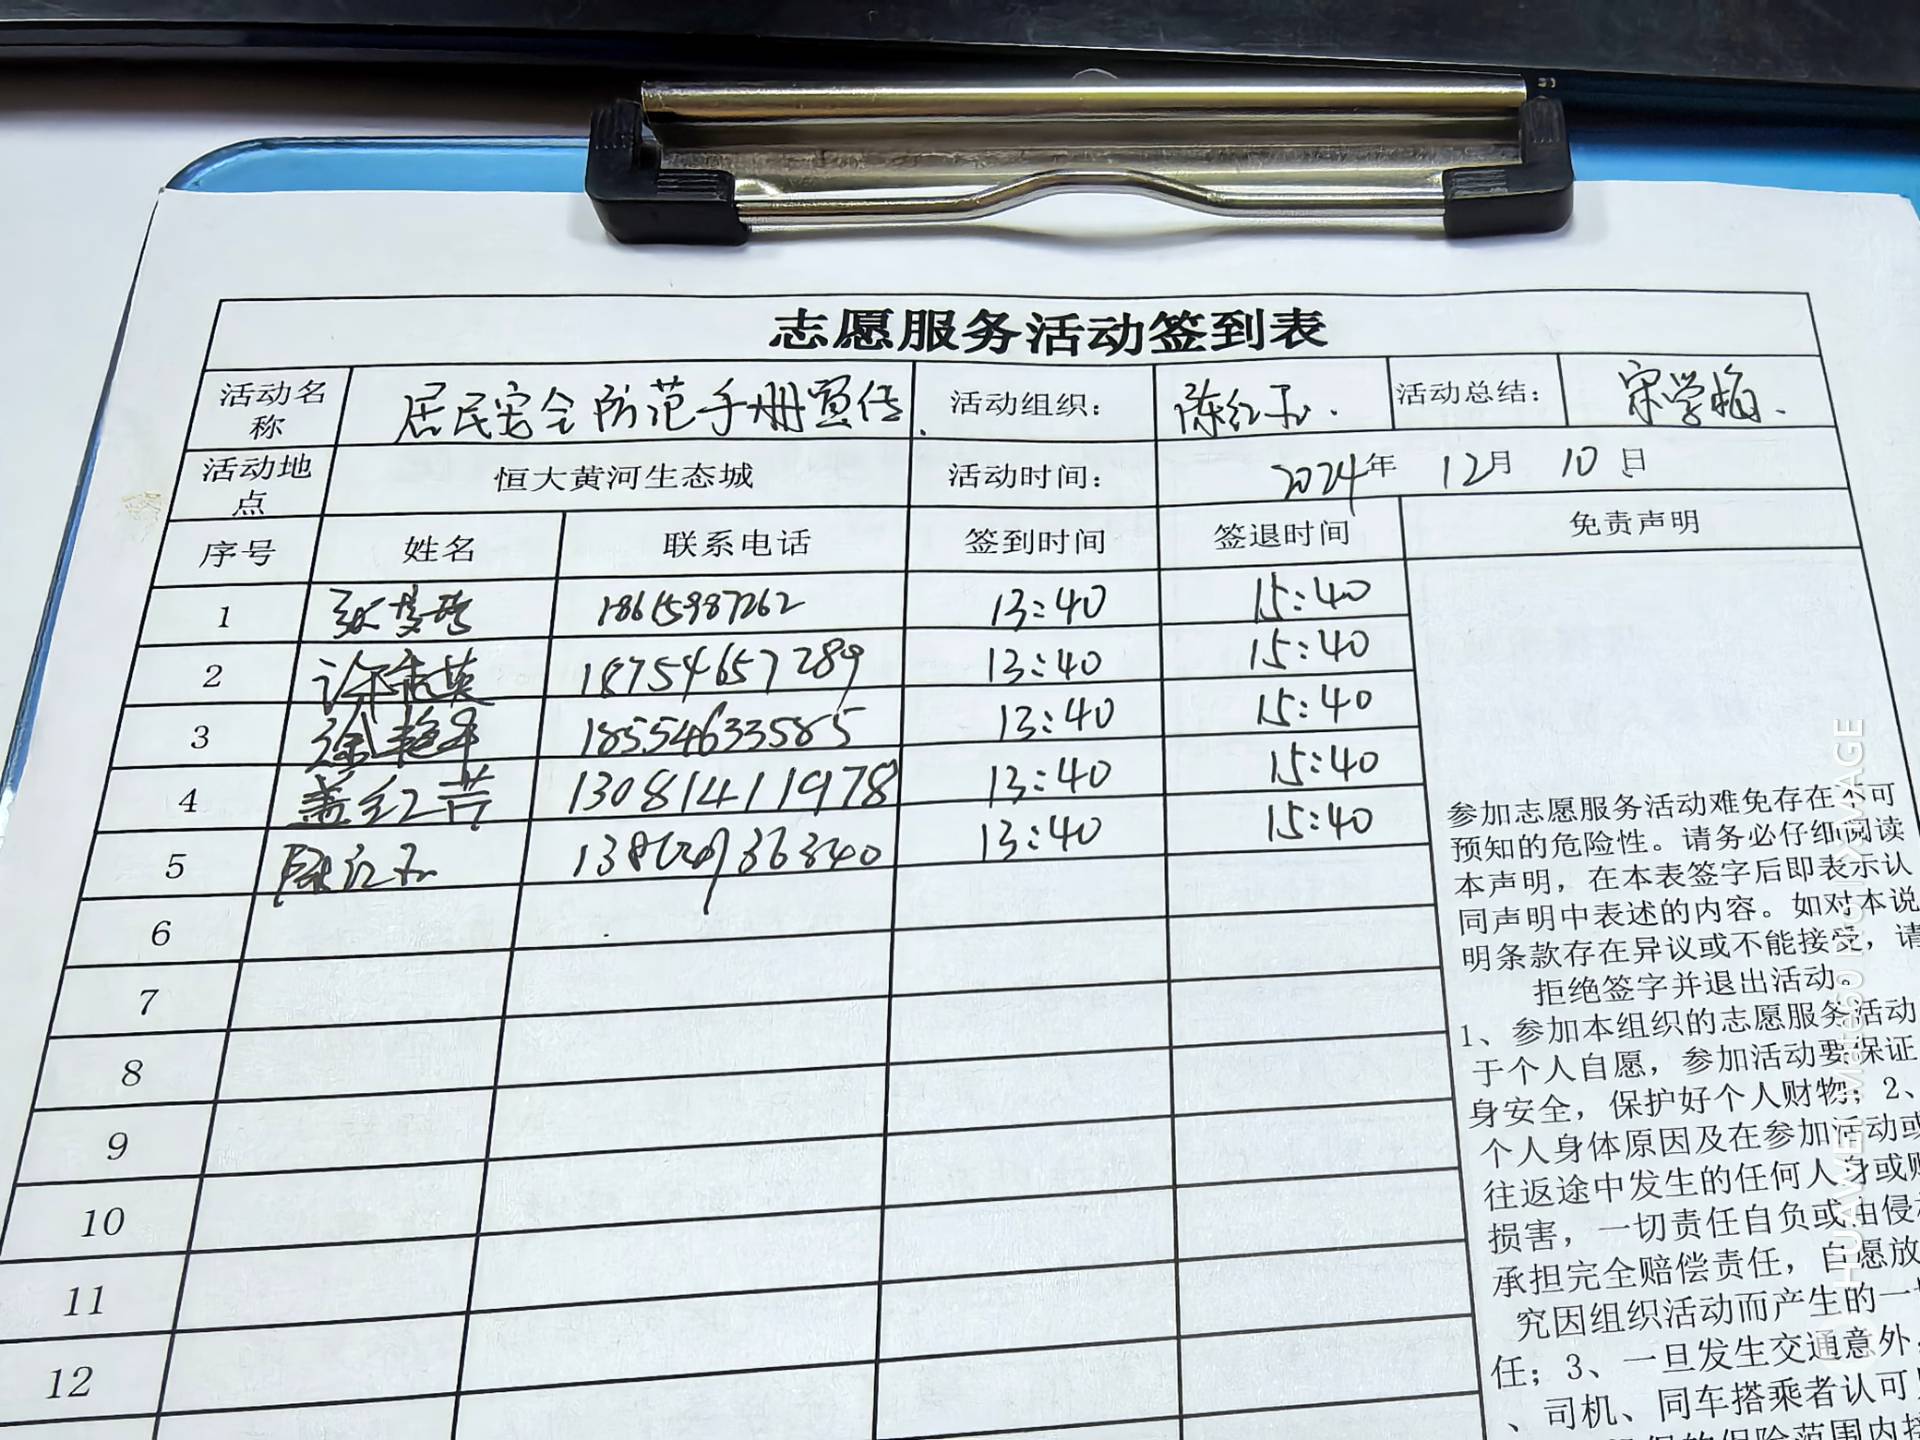 志愿服务活动签到表
活动名称 居民安全防范手册宣传. 活动组织: 陈红玉. 活动总结: 宋学梅.
活动地点 恒大黄河生态城 活动时间: 2024年 12月 10日
序号 姓名 联系电话 签到时间 签退时间 免责声明
1 18615987262 13:40 15:40
2 许志英 18754657289 13:40 15:40
3 徐艳平 18554633585 13:40 15:40
4 盖红芳 13081411978 13:40 15:40
5 陈红玉 13:40 15:40
6
7
8
9
10
11
12
参加志愿服务活动难免存在不可
预知的危险性。请务必仔细阅读
本声明，在本表签字后即表示认
同声明中表述的内容。如对本说
明条款存在异议或不能接受，请
拒绝签字并退出活动。
1、参加本组织的志愿服务活动
于个人自愿，参加活动要保证
身安全，保护好个人财物；2、
个人身体原因及在参加活动或
往返途中发生的任何人身或财
损害，一切责任自负或由侵权
承担完全赔偿责任，自愿放
究因组织活动而产生的一切
任；3、一旦发生交通意外，
、司机、同车搭乘者认可
的保险范围内接
HUAWEI Mate60 Pro | XMAGE